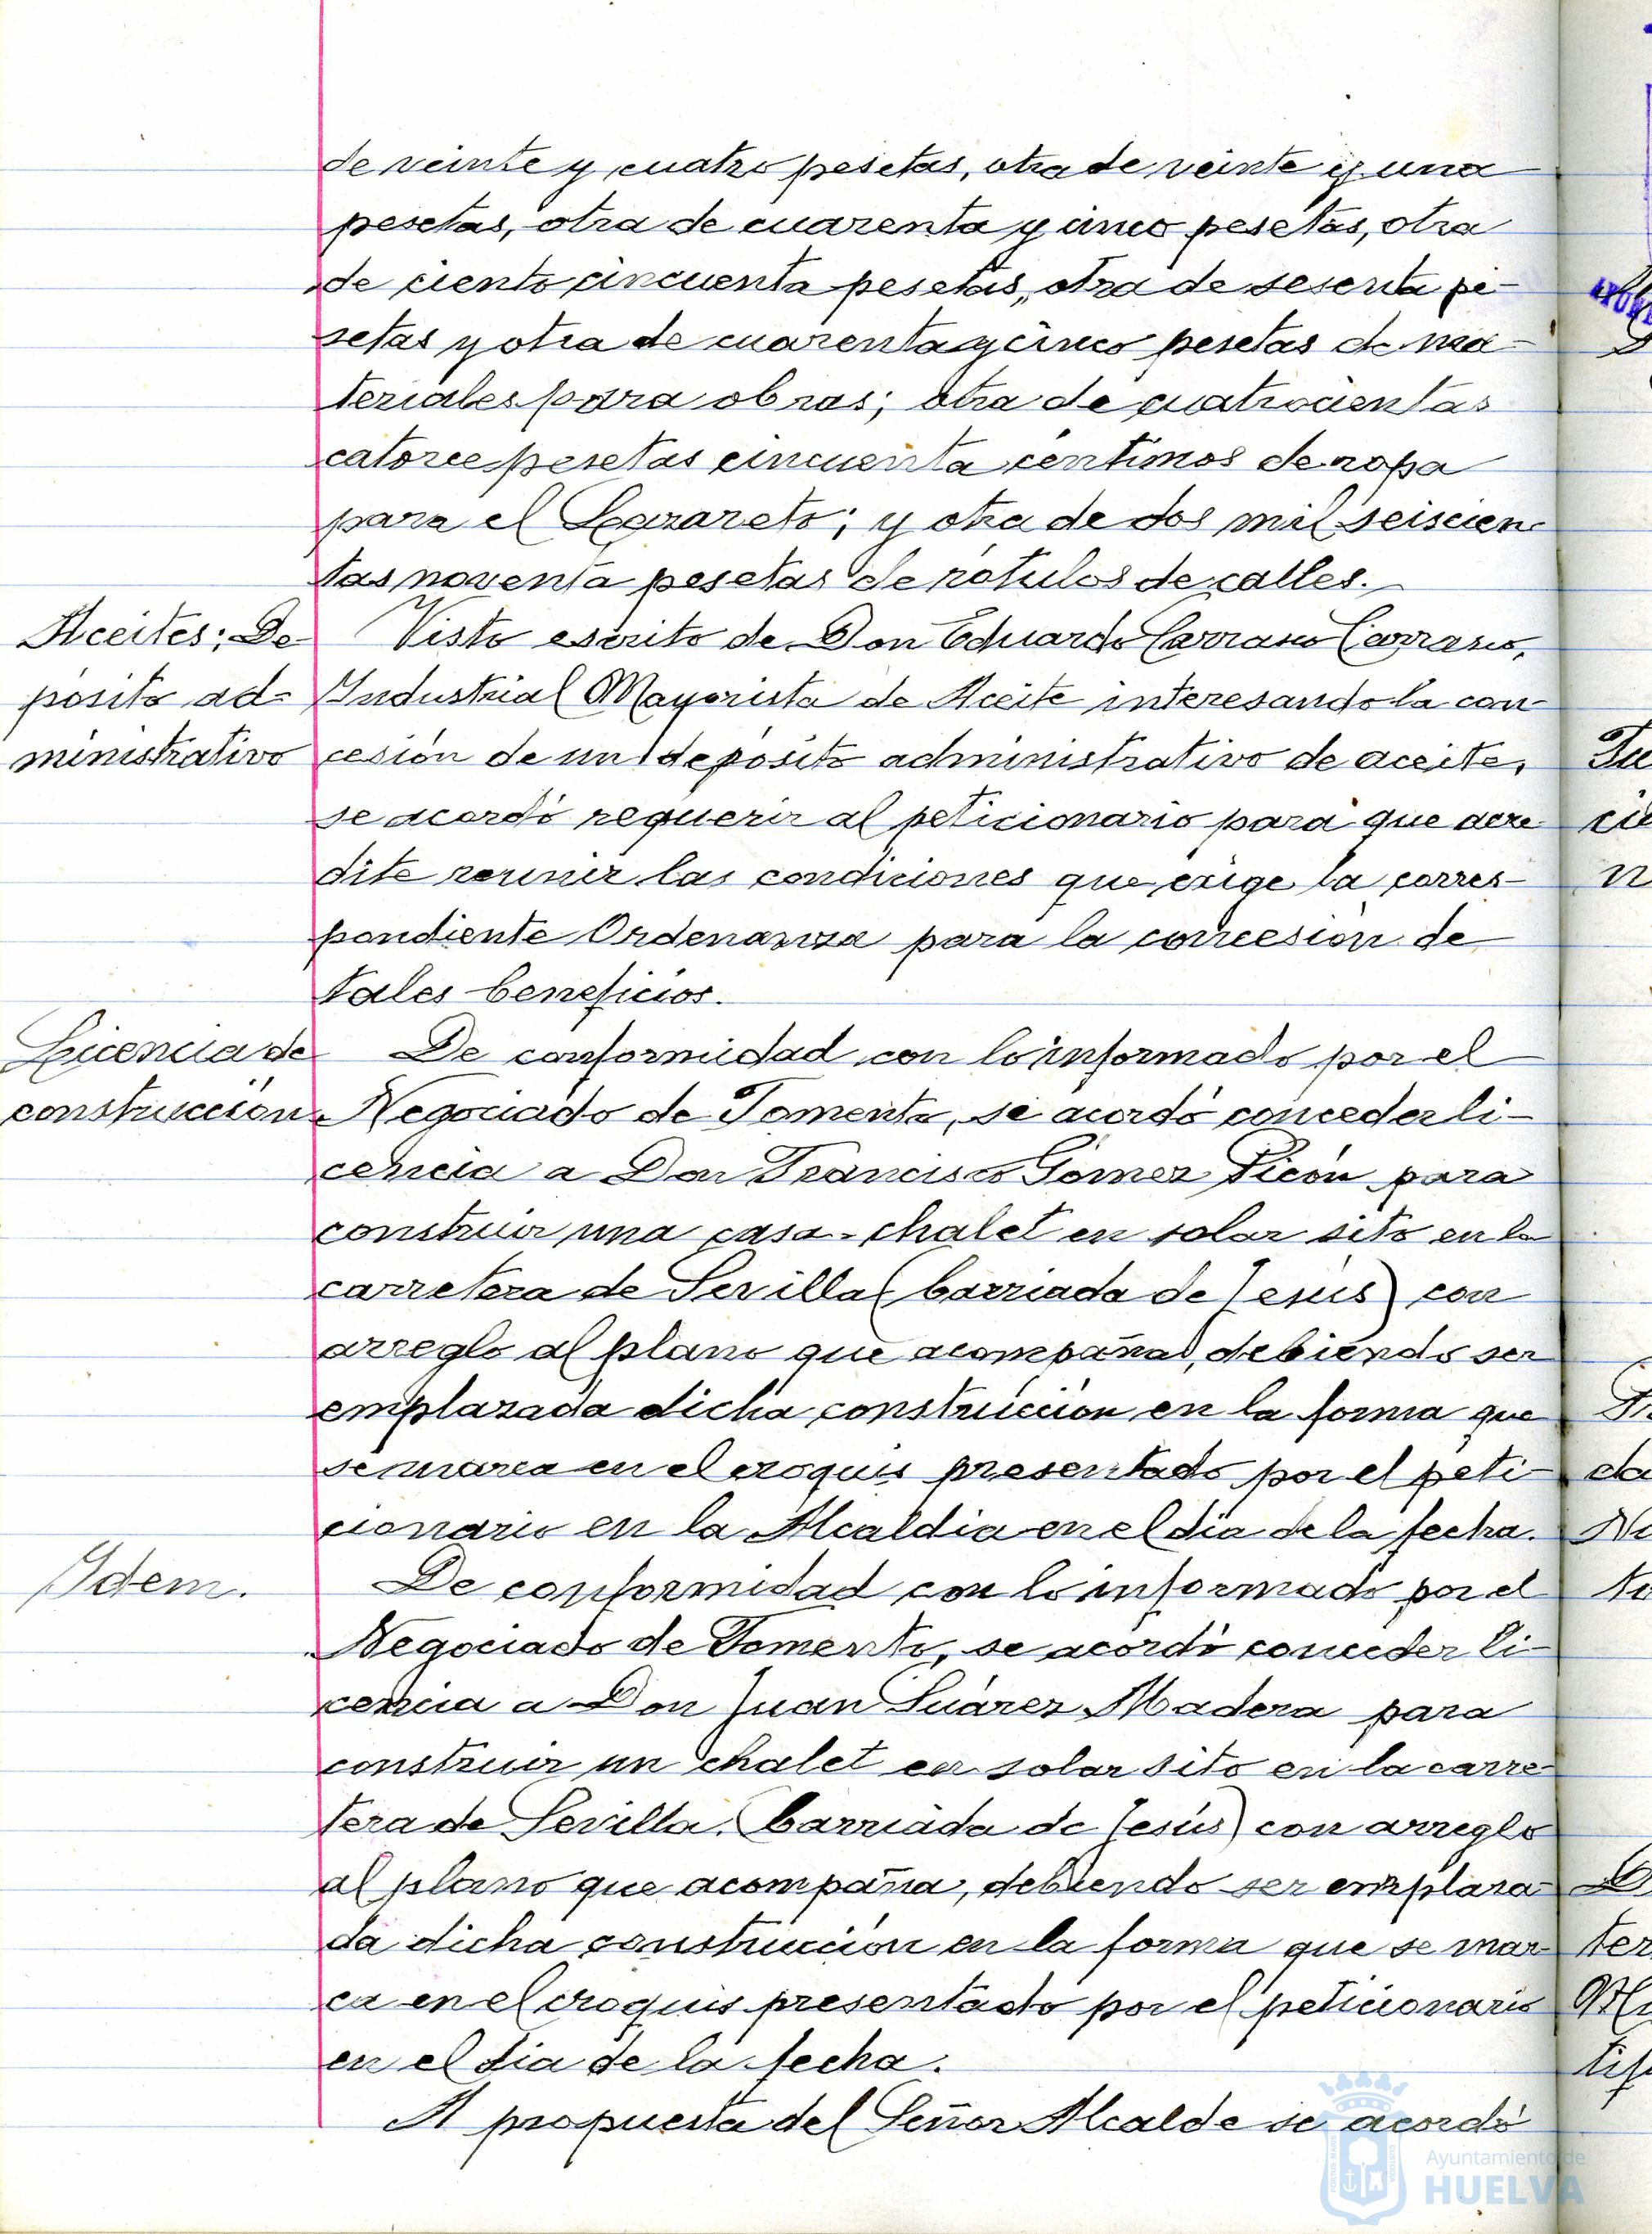 de veinte y cuatro pesetas, otra de veinte y una
pesetas, otra de cuarenta y cinco pesetas, otra
de ciento cincuenta pesetas, otra de sesenta pe-
setas y otra de cuarenta y cinco pesetas de ma-
teriales para obras; otra de cuatrocientas
catorce pesetas cincuenta céntimos de ropa
para el Lazareto; y otra de dos mil seiscien-
tas noventa pesetas de rótulos de calles.
Aceites; De-
pósito ad-
ministrativo
Visto escrito de Don Eduardo Carrasco Carrasco,
Industrial Mayorista de Aceite interesando la con-
cesión de un depósito administrativo de aceite,
se acordó requerir al peticionario para que acre-
dite reunir las condiciones que exige la corres-
pondiente Ordenanza para la concesión de
tales beneficios.
Licencia de
construcción
De conformidad con lo informado por el
Negociado de Fomento, se acordó conceder li-
cencia a Don Francisco Gómez Picón para
construir una casa-chalet en solar sito en la
carretera de Sevilla (barriada de Jesús) con
arreglo al plano que acompaña, debiendo ser
emplazada dicha construcción en la forma que
se marca en el croquis presentado por el peti-
cionario en la Alcaldía en el día de la fecha.
Idem.
De conformidad con lo informado por el
Negociado de Fomento, se acordó conceder li-
cencia a Don Juan Suárez Madera para
construir un chalet en solar sito en la carre-
tera de Sevilla (barriada de Jesús) con arreglo
al plano que acompaña, debiendo ser emplaza-
da dicha construcción en la forma que se mar-
ca en el croquis presentado por el peticionario
en el día de la fecha.
A propuesta del Señor Alcalde se acordó
Ayuntamiento de
HUELVA